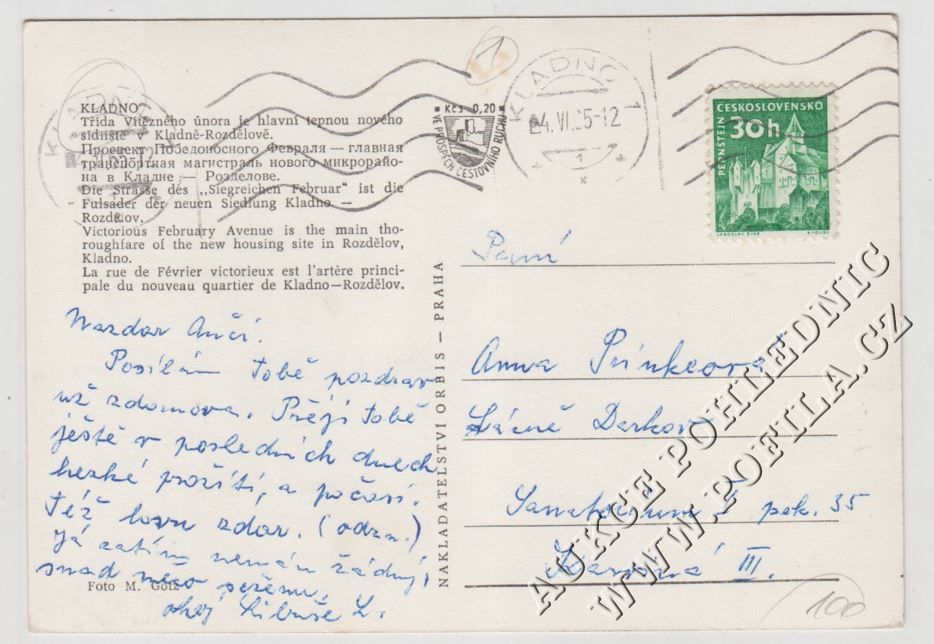 KLADNO
Třída Vítězného února je hlavní tepnou nového
sídliště v Kladně-Rozdělově.
Проспект Победоносного Февраля — главная
транспортная магистраль нового микрорайо-
на в Кладне — Розделове.
Die Strasse des „Siegreichen Februar" ist die
Pulsader der neuen Siedlung Kladno —
Rozdělov.
Victorious February Avenue is the main tho-
roughfare of the new housing site in Rozdělov,
Kladno.
La rue de Février victorieux est l'artère princi-
pale du nouveau quartier de Kladno—Rozdělov.
Nazdar Anči.
Posílám Tobě pozdrav
už zdomova. Přeji tobě
ještě v posledních dnech
hezké prožití, a počasí.
Též lovu zdar. (odzn.)
Já zatím nemám žádný,
snad něco seženu.
ahoj Libuše L.
Foto M. Götz
NAKLADATELSTVÍ ORBIS — PRAHA
Kčs 0,20
VE PROSPĚCH CESTOVNÍHO RUCHU
KLADNO 1
24. VI. 65-12
1
ČESKOSLOVENSKO
30h
PERNŠTEJN
JAROSLAV ŠVÁB
Paní
Anna
Lázně Darkov
Sanatorium I pok. 35
Karviná III.
100
AUKCE POHLEDNIC
WWW.POFILA.CZ